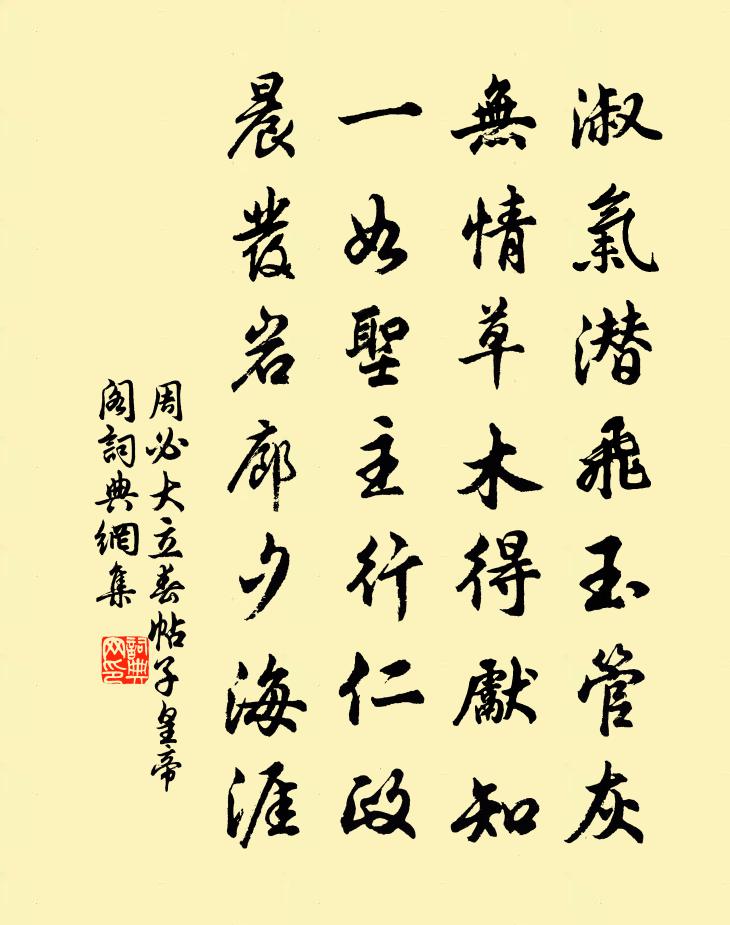 淑氣潜飛玉管灰
無情草木得獻知
一如聖主行仁政
晨發岩廊夕海涯
周必大立春帖子皇帝
閣詞典網集
詞典
网印